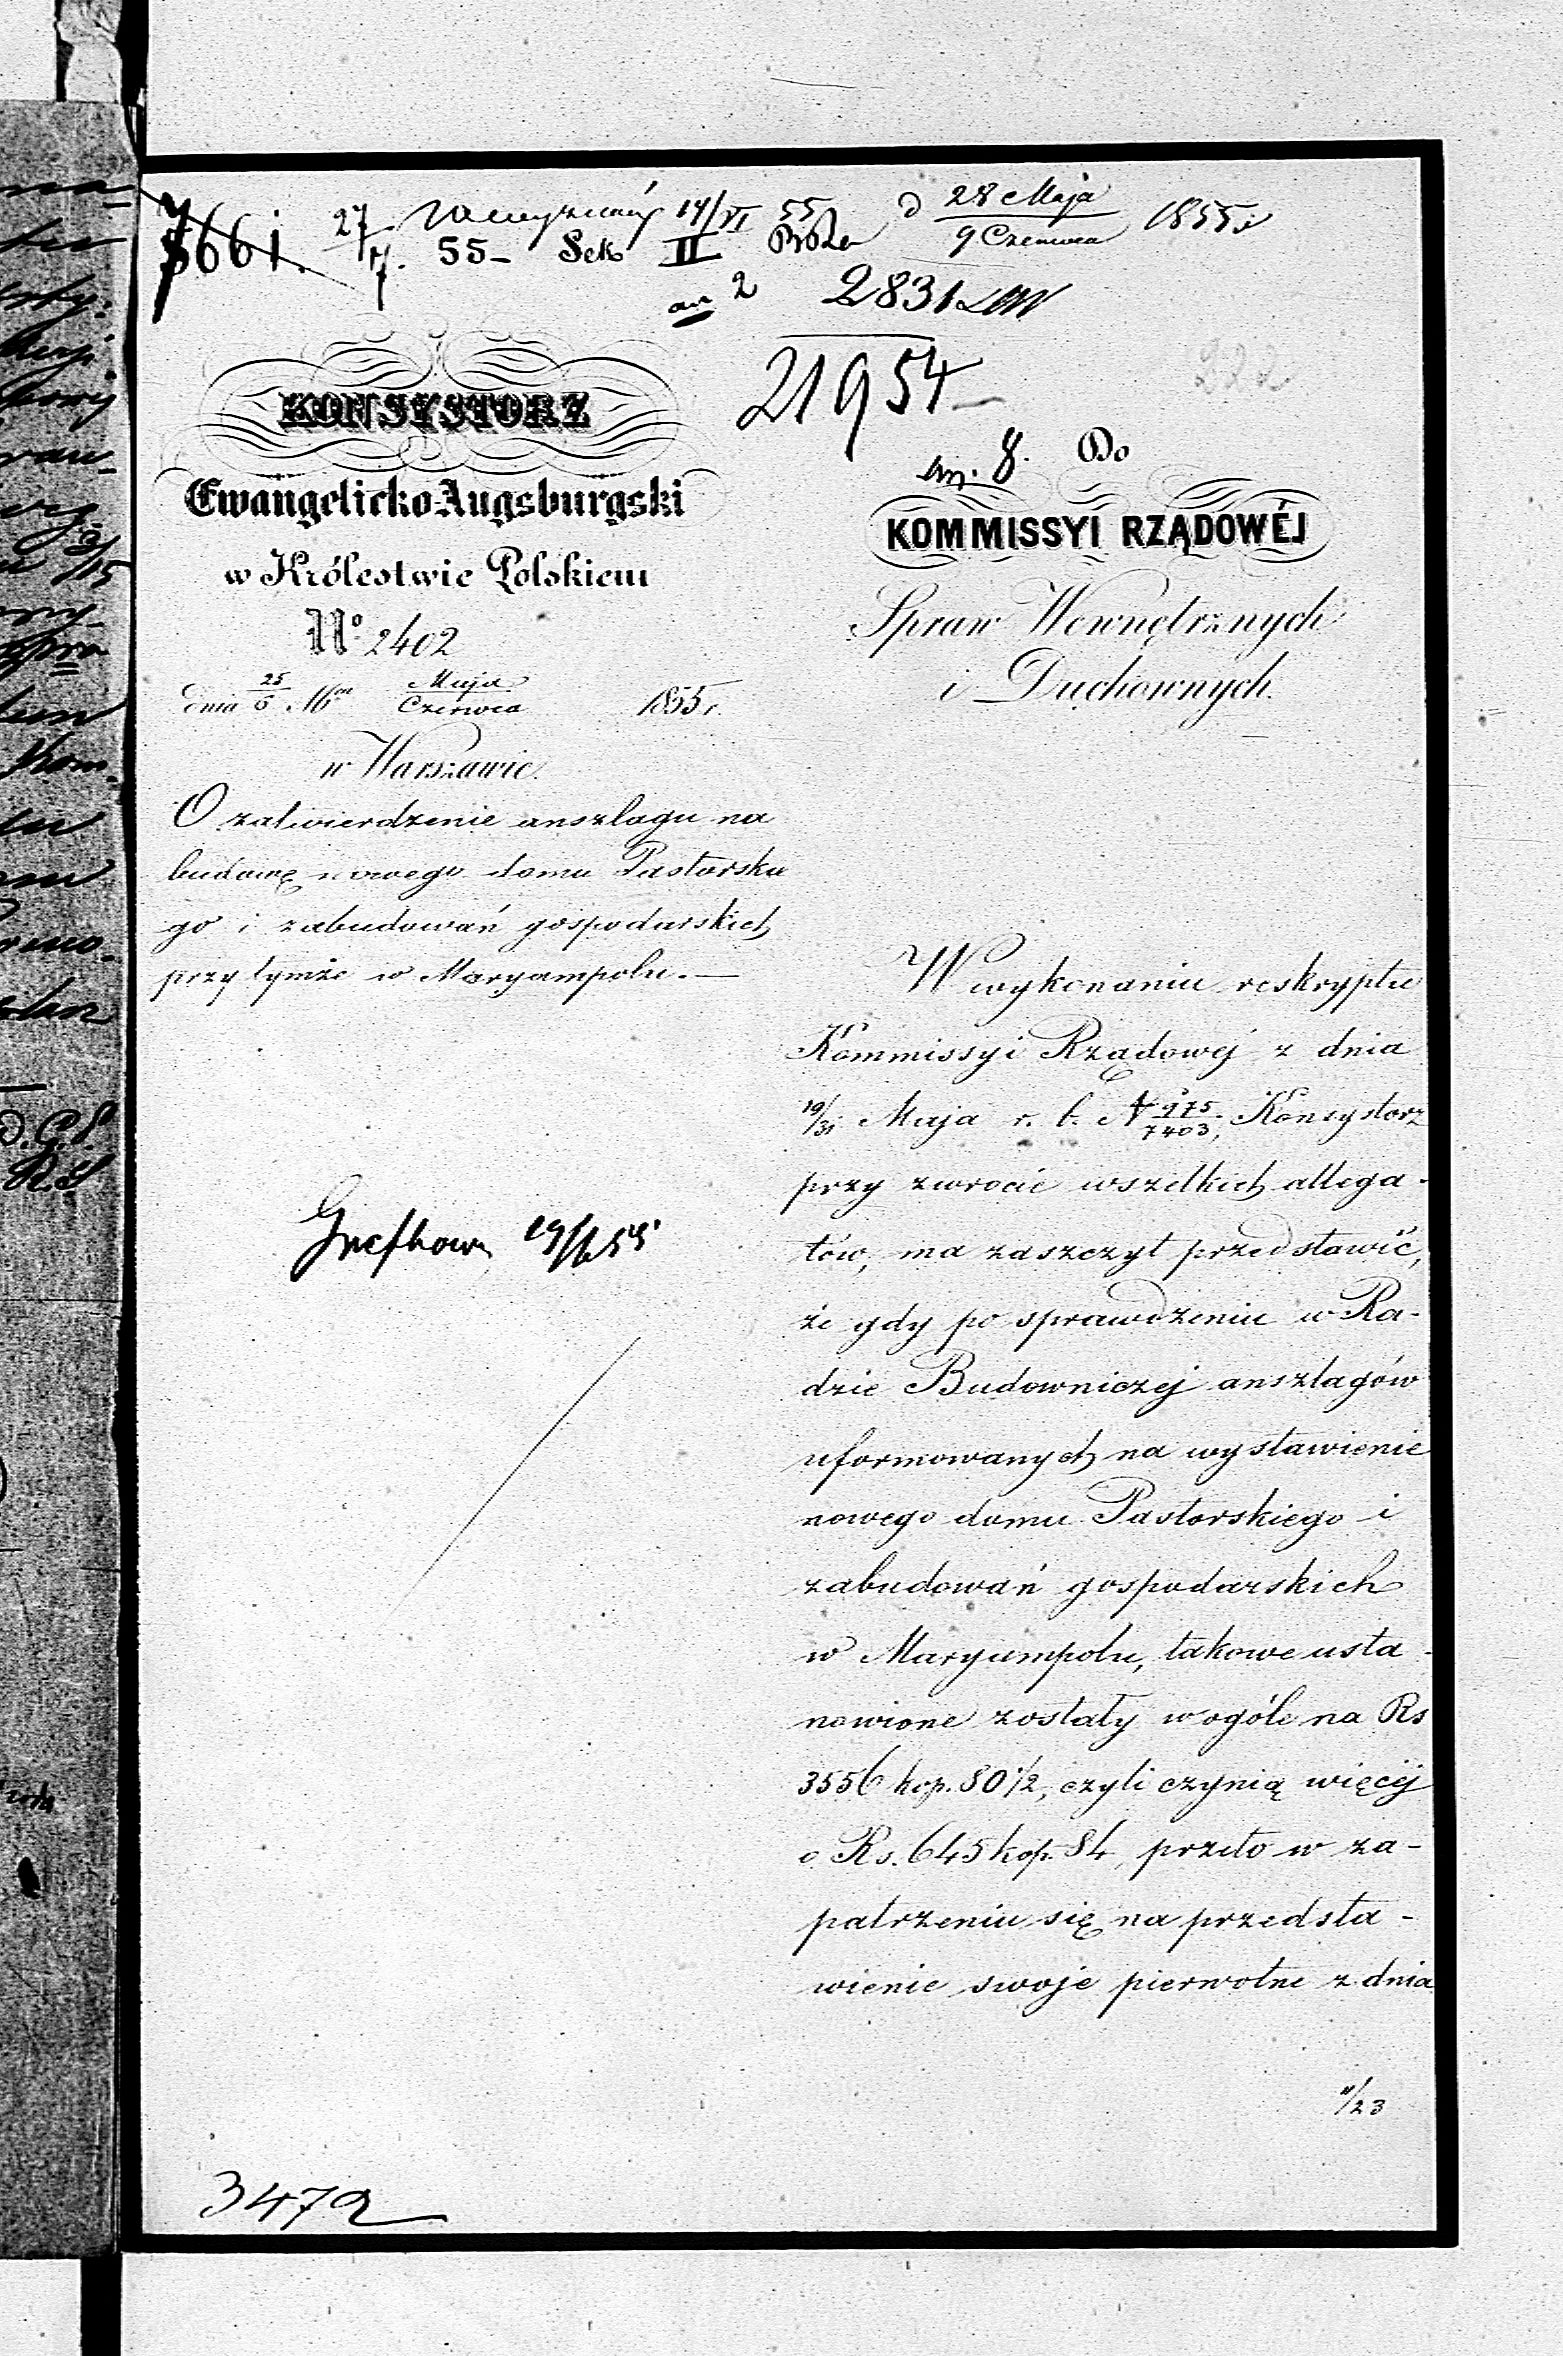 7661. 27/7. 55 – Sek II 14/VI 55
d 28 Maja / 9 Czerwca 1855 r
2831
21954
KONSYSTORZ
Ewangelicko-Augsburgski
w Królestwie Polskiem
No 2402
dnia 25/6 Mca Maja/Czerwca 1855 r.
w Warszawie.
O zatwierdzenie anszlagu na
budowę nowego domu Pastorske
go i zabudowań gospodarskich
przy tymże w Maryampolu. —
19/6 55
8. Do
KOMMISSYI RZĄDOWÉJ
Spraw Wewnętrznych
i Duchownych.
W wykonaniu reskryptu
Kommissyi Rządowej z dnia
19/31 Maja r. b. N 975/7403, Konsystorz
przy zwrocie wszelkich allega-
tów, ma zaszczyt przedstawić,
że gdy po sprawdzeniu w Ra-
dzie Budowniczej anszlagów
uformowanych na wystawienie
nowego domu Pastorskiego i
zabudowań gospodarskich
w Maryampolu, takowe usta-
nowione zostały w ogóle na Rs
3556 kop. 80 1/2, czyli czynią więcéj
o Rs. 645 kop. 84, przeto w za-
patrzeniu się na przedsta-
wienie swoje pierwotne z dnia
11/23
3472